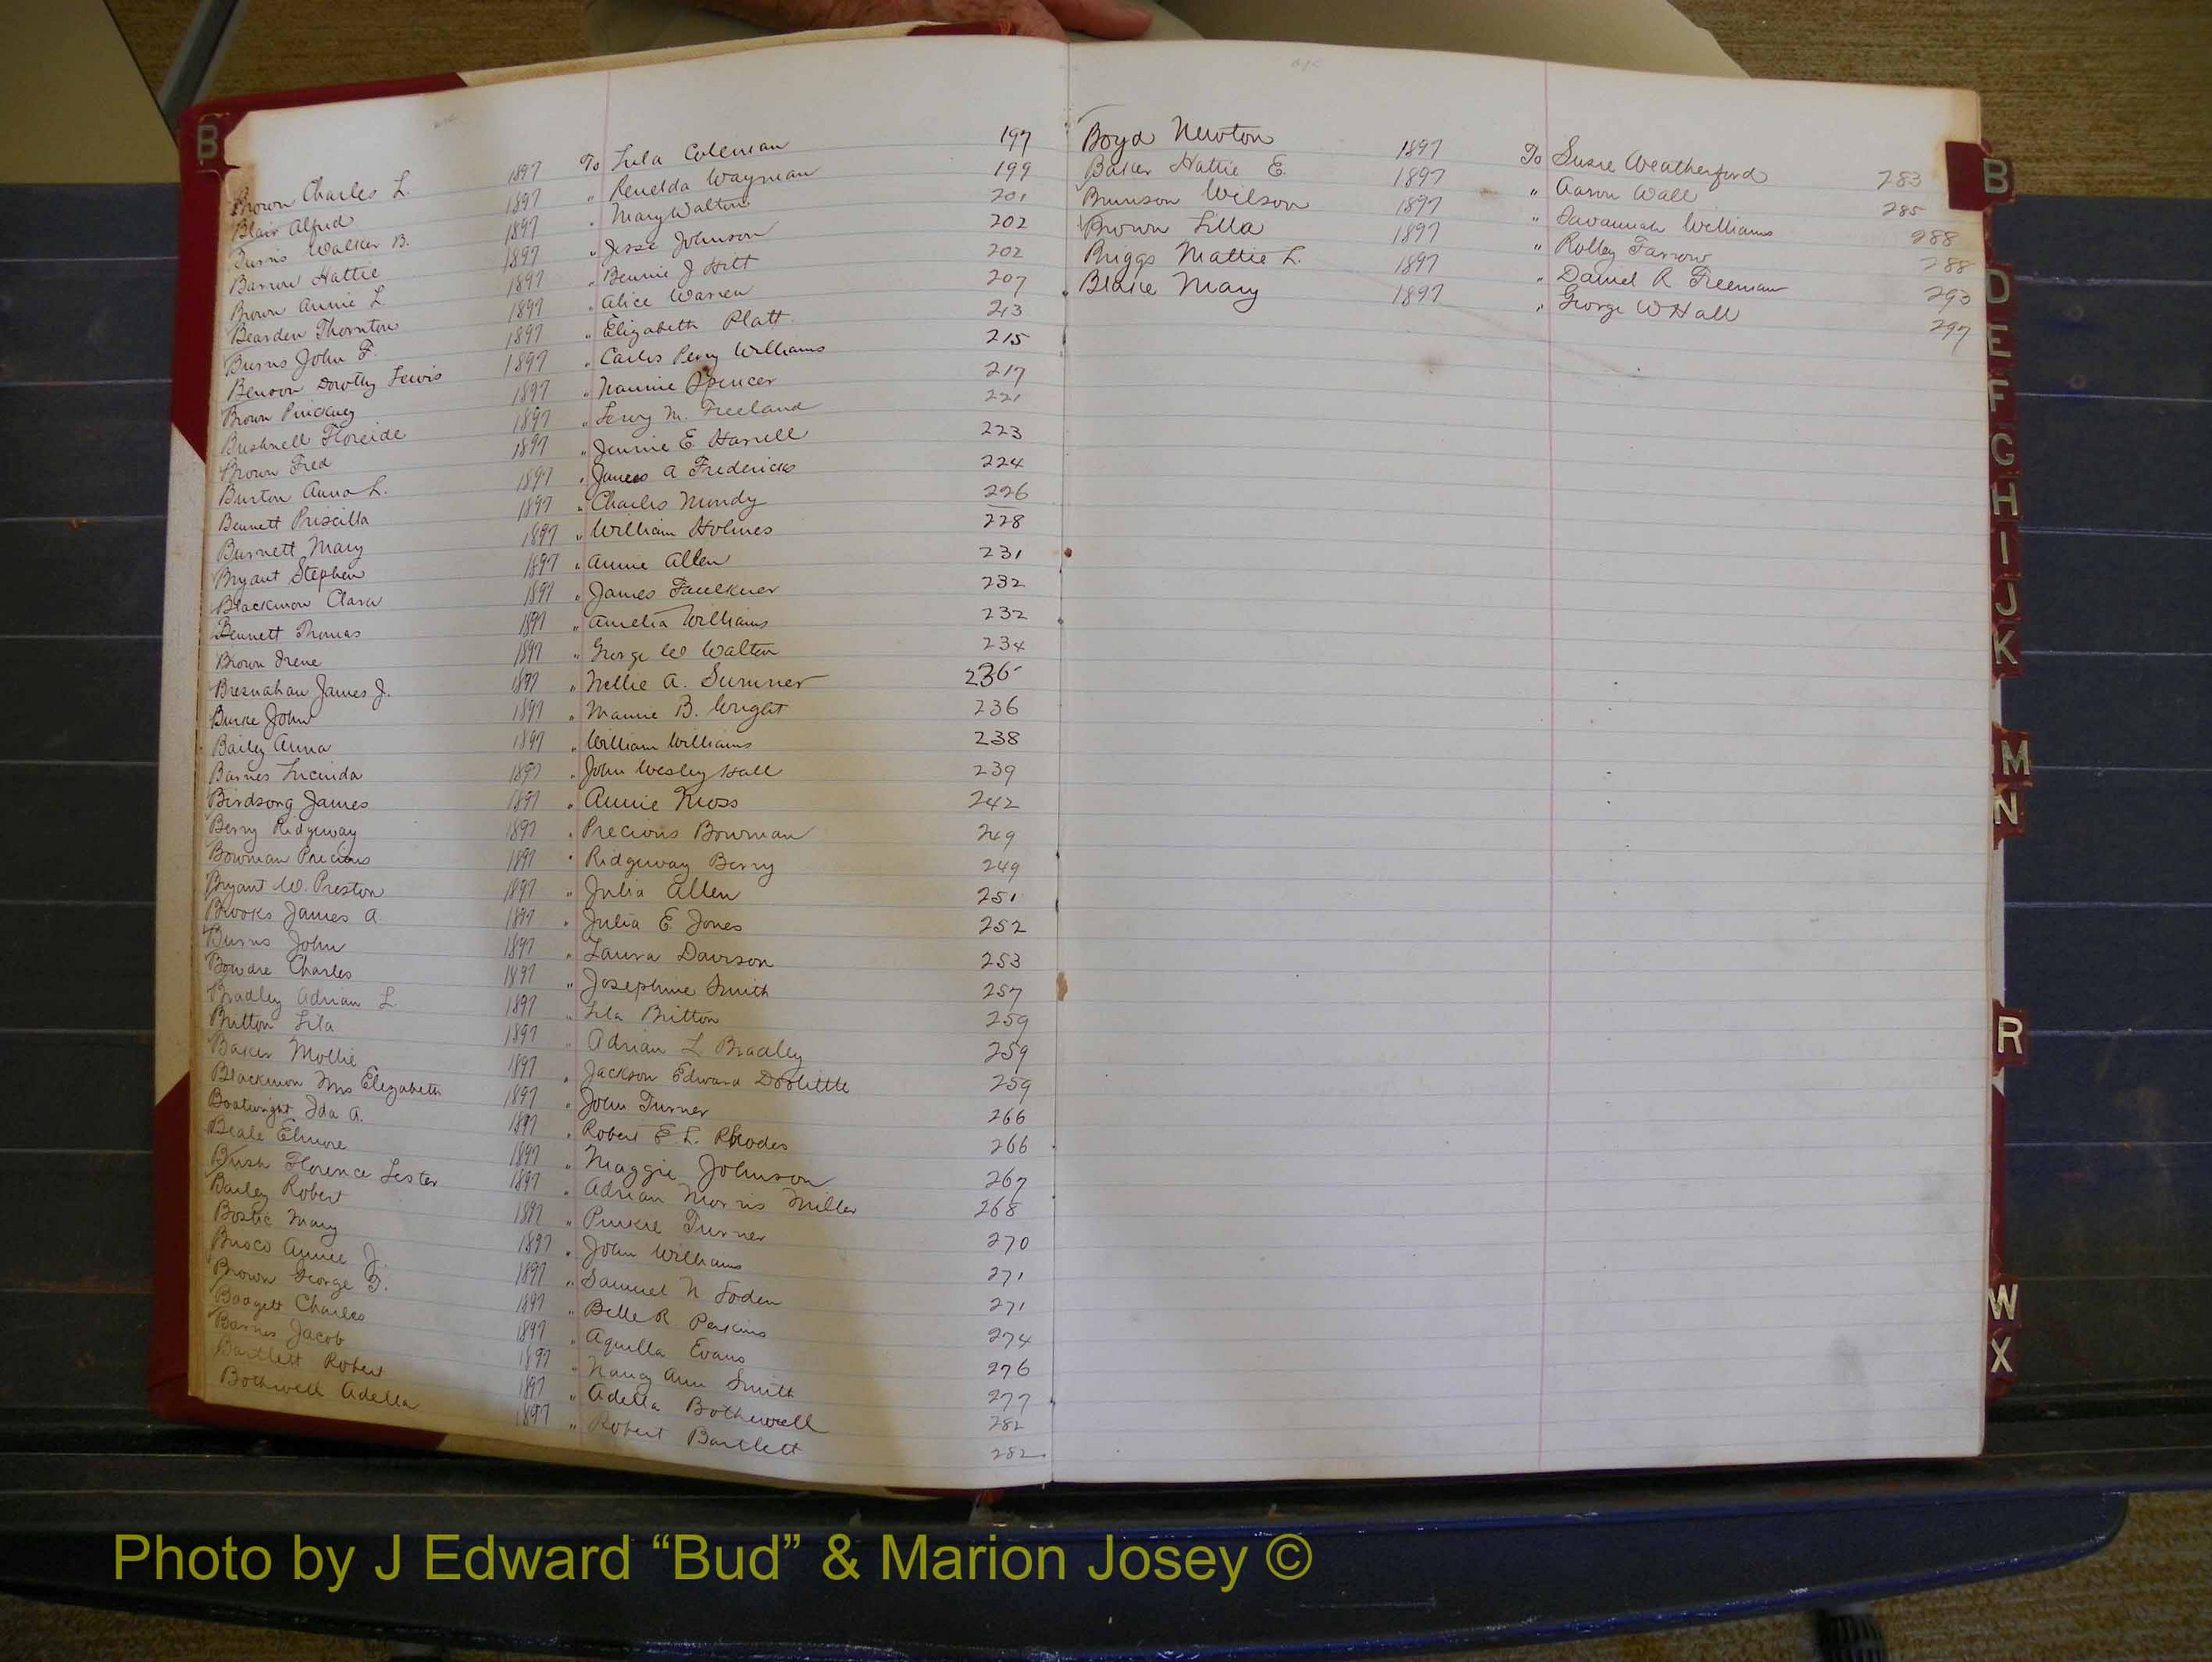 B
Brown Charles L. 1897 To Lula Coleman 197
Blair Alfred 1897 " Renelda Wayman 199
Burns Walker B. 1897 " Mary Walton 201
Barrow Hattie 1897 " Jesse Johnson 202
Brown Annie L 1897 " Bennie J Hitt 202
Bearden Thornton 1897 " Alice Warren 207
Burns John F. 1897 " Elizabeth Platt 213
Benson Dorothy Lewis 1897 " Carlos Perry Williams 215
Brown Pinckney 1897 " Nannie Spencer 217
Bushnell Floreide 1897 " Leroy M. Freeland 221
Brown Fred 1897 " Jennie E. Harrell 223
Burton Anna L. 1897 " James A Fredericks 224
Bennett Priscilla 1897 " Charles Mondy 226
Burnett Mary 1897 " William Holmes 228
Bryant Stephen 1897 " Annie Allen 231
Blackmon Clara 1897 " James Faulkner 232
Bennett Thomas 1897 " Amelia Williams 232
Brown Irene 1897 " George W Walton 234
Bresnahan James J. 1897 " Nellie A. Sumner 236
Burke John 1897 " Mamie B. Wright 236
Bailey Anna 1897 " William Williams 238
Barnes Lucinda 1897 " John Wesley Hall 239
Birdsong James 1897 " Annie Kross 242
Berry Ridgeway 1897 " Precious Bowman 249
Bowman Precious 1897 " Ridgeway Berry 249
Bryant W. Preston 1897 " Julia Allen 251
Brooks James A. 1897 " Julia E. Jones 252
Burns John 1897 " Laura Davison 253
Bowdre Charles 1897 " Josephine Smith 257
Bradley Adrian L. 1897 " Lila Britton 259
Britton Lila 1897 " Adrian L Bradley 259
Baker Mollie 1897 " Jackson Edward Doolittle 259
Blackmon Mrs Elizabeth 1897 " John Turner 266
Boatwright Ida A. 1897 " Robert E. L. Rhodes 266
Beale Elmore 1897 " Maggie Johnson 267
Bush Florence Lester 1897 " Adrian Morris Miller 268
Bailey Robert 1897 " Pinkie Turner 270
Bostic Mary 1897 " John Williams 271
Busco Annie J. 1897 " Samuel N Loden 271
Brown George T. 1897 " Belle R Perkins 274
Baggett Charles 1897 " Aquilla Evans 276
Barnes Jacob 1897 " Nancy Ann Smith 277
Bartlett Robert 1897 " Adella Bothwell 282
Bothwell Adella 1897 " Robert Bartlett 282
Boyd Newton 1897 To Susie Weatherford 283
Baker Hattie E. 1897 " Aaron Wall 285
Brunson Wilson 1897 " Savannah Williams 288
Brown Lilla 1897 " Rolley Farrow 288
Briggs Mattie L. 1897 " Daniel R Freeman 293
Blake Mary 1897 " George W Hall 297
B
D
E
F
G
H
I
J
K
M
N
R
W
X
Photo by J Edward “Bud” & Marion Josey ©